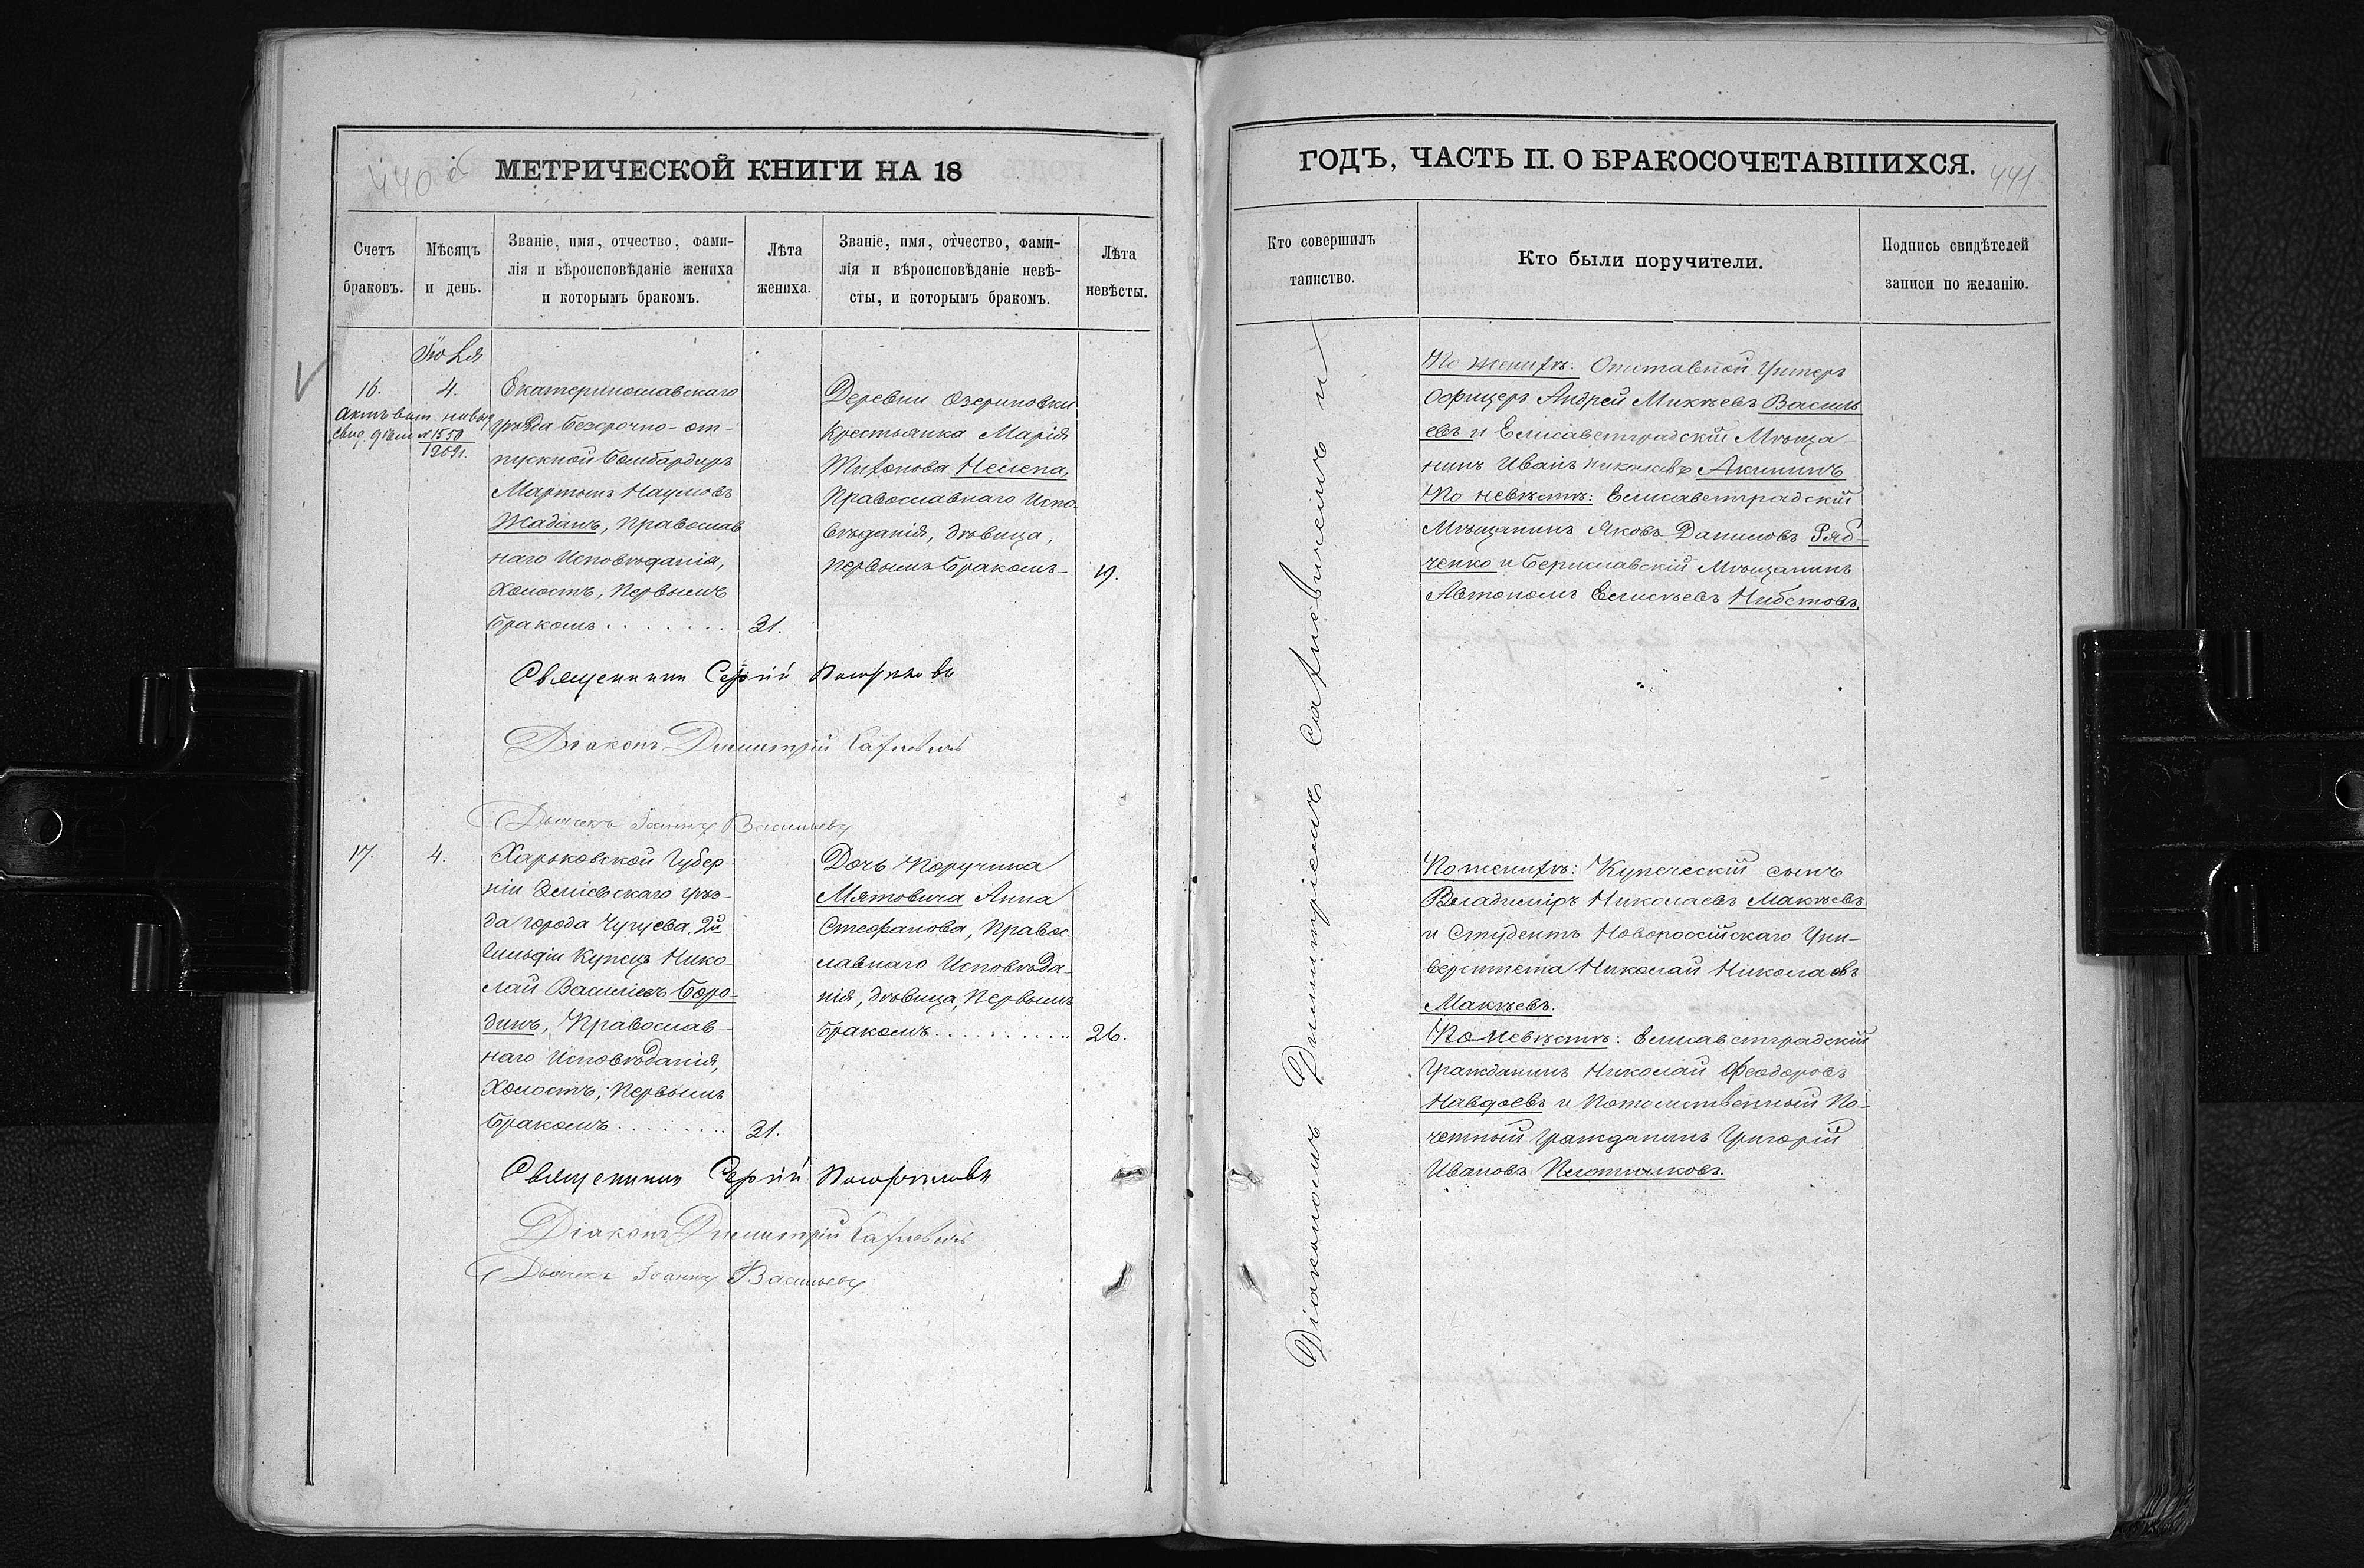 440 об
МЕТРИЧЕСКОЙ КНИГИ НА 18
Счетъ браковъ.
Мѣсяцъ и день.
Званіе, имя, отчество, фами-
лія и вѣроисповѣданіе жениха
и которымъ бракомъ.
Лѣта жениха.
Званіе, имя, отчество, фами-
лія и вѣроисповѣданіе невѣ-
сты, и которымъ бракомъ.
Лѣта невѣсты.
Іюля
16.
4.
Актъ вып.
свид. № 1550
1909г.
Екатеринославскаго
уѣзда безсрочно-от-
пускной Бомбардиръ
Мартинъ Наумовъ
Жаданъ, православ
наго исповѣданія,
холостъ, первымъ
бракомъ . . . . . . .
31.
Деревни Озериповки
крестьянка Марія
Тихонова Нелепа,
православнаго испо-
вѣданія, дѣвица,
первымъ бракомъ
19.
Священникъ Сергій
Діаконъ Димитрій Сахневичъ
Дьячекъ Іоаннъ Васильевъ
17.
4.
Харьковской Губер-
ніи Зміевскаго уѣз-
да города Чугуева 2й
Гильдіи Купецъ Нико-
лай Васильевъ Боро-
динъ, Православ-
наго исповѣданія,
холостъ, первымъ
бракомъ . . . . . . . .
31.
Дочь Поручика
Мятовича Анна
Стефанова, правос-
лавнаго исповѣда-
нія, дѣвица, первымъ
бракомъ . . . . . . . . . .
26.
Священникъ Сергій
Діаконъ Димитрій Сахневичъ
Дьячекъ Іоаннъ Васильевъ
ГОДЪ, ЧАСТЬ II. О БРАКОСОЧЕТАВШИХСЯ.
441
Кто совершилъ
таинство.
Кто были поручители.
Подпись свидѣтелей
записи по желанію.
Діакономъ Димитріемъ Сахновичемъ и
По женихѣ: Отставной Унтеръ
Офицеръ Андрей Михѣевъ Василь
евъ и Елисаветградскій Мѣща-
нинъ Иванъ Николаевъ Акининъ
По невѣстѣ: Елисаветградскій
Мѣщанинъ Яковъ Даниловъ Ряб-
ченко и Бериславскій Мѣщанинъ
Автономъ Елисѣевъ
По женихѣ: Купеческій сынъ
Владиміръ Николаевъ Макѣевъ
и Студентъ Новороссійскаго Уни-
верситета Николай Николаевъ
Макѣевъ.
По невѣстѣ: Елисаветградскій
Гражданинъ Николай Феодоровъ
и Потомственный По-
четный Гражданинъ Григорій
Ивановъ Плотниковъ.